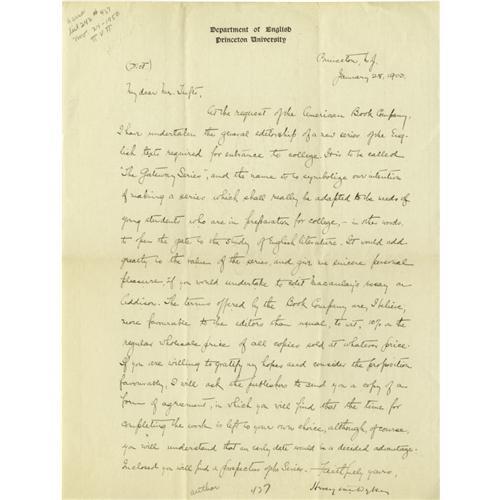 Department of English
Princeton University
Princeton, N.J.
January 28, 1903.
My dear Mr. Tufts,
At the request of the American Book Company,
I have undertaken the general editorship of a new series of the Eng-
lish texts required for entrance to college. It is to be called
"The Gateway Series", and the name is to symbolize our intention
of making a series which shall really be adapted to the needs of
young students who are in preparation for college, - in other words,
to open the gate to the study of English literature. It would add
greatly to the value of the series, and give me sincere personal
pleasure, if you would undertake to edit Macaulay's essay on
Addison. The terms offered by the Book Company are, I believe,
more favourable to the editors than usual, to wit, 10% on the
regular wholesale price of all copies sold at whatever price.
If you are willing to gratify my hopes and consider the proposition
favourably, I will ask the publishers to send you a copy of a
form of agreement, in which you will find that the time for
completing the work is left to your own choice, although, of course,
you will understand that an early date would be a decided advantage.
Inclosed you will find a prospectus of the Series. Faithfully yours,
Henry van Dyke
author 437